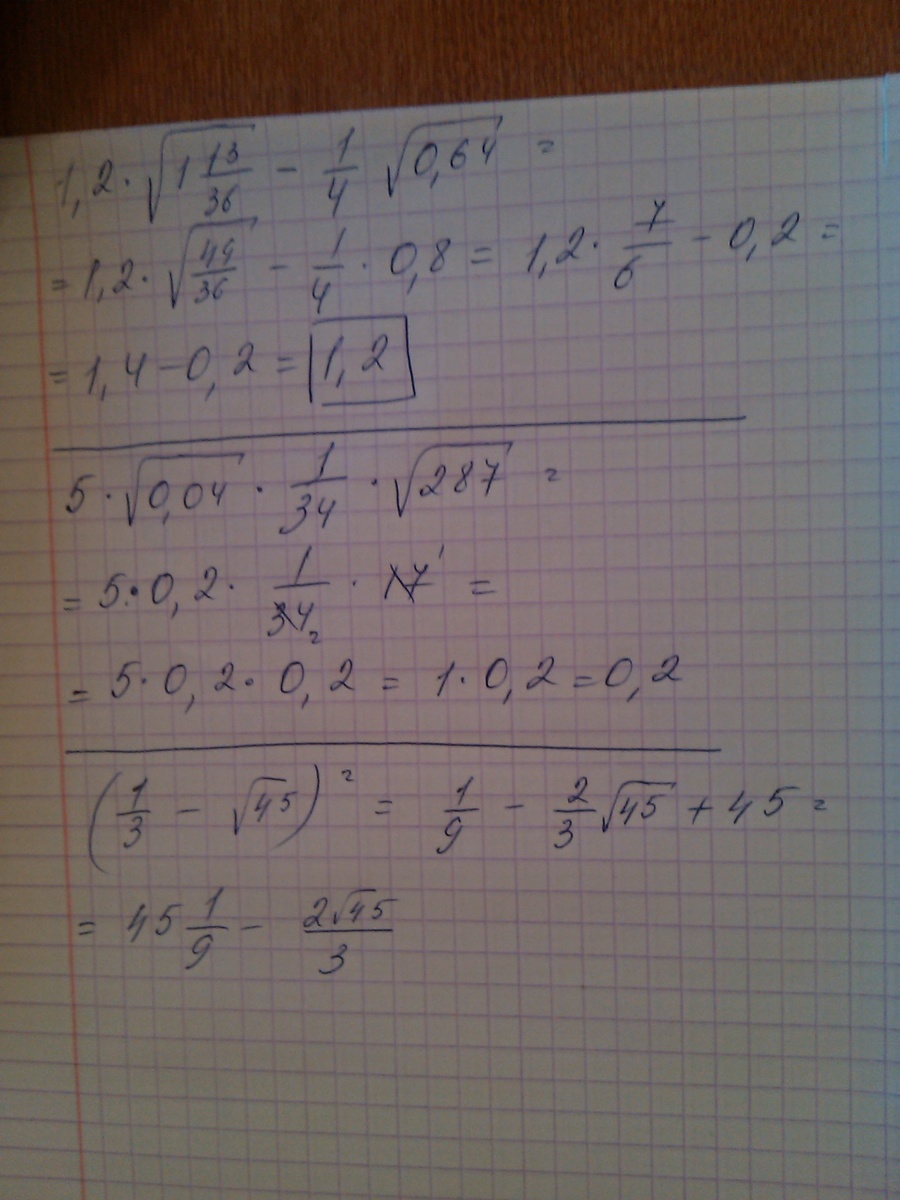 1,2·√(1 13/36) − 1/4 √(0,64) =
= 1,2·√(49/36) − 1/4 · 0,8 = 1,2· 7/6 − 0,2 =
= 1,4 − 0,2 = 1,2
5·√(0,04) · 1/34 · √(287) =
= 5·0,2· 1/34 2 · 17 1 =
= 5·0,2·0,2 = 1·0,2 = 0,2
(1/3 − √45)² = 1/9 − 2/3 √45 + 45 =
= 45 1/9 − 2√45/3